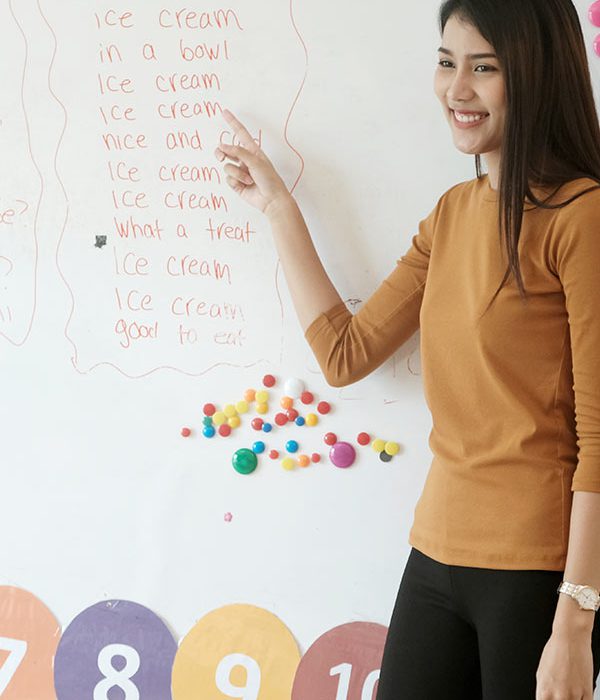 ice cream
in a bowl
Ice cream
Ice cream
nice and cold
Ice cream
Ice cream
What a treat
Ice cream
Ice cream
good to eat
7
8
9
10